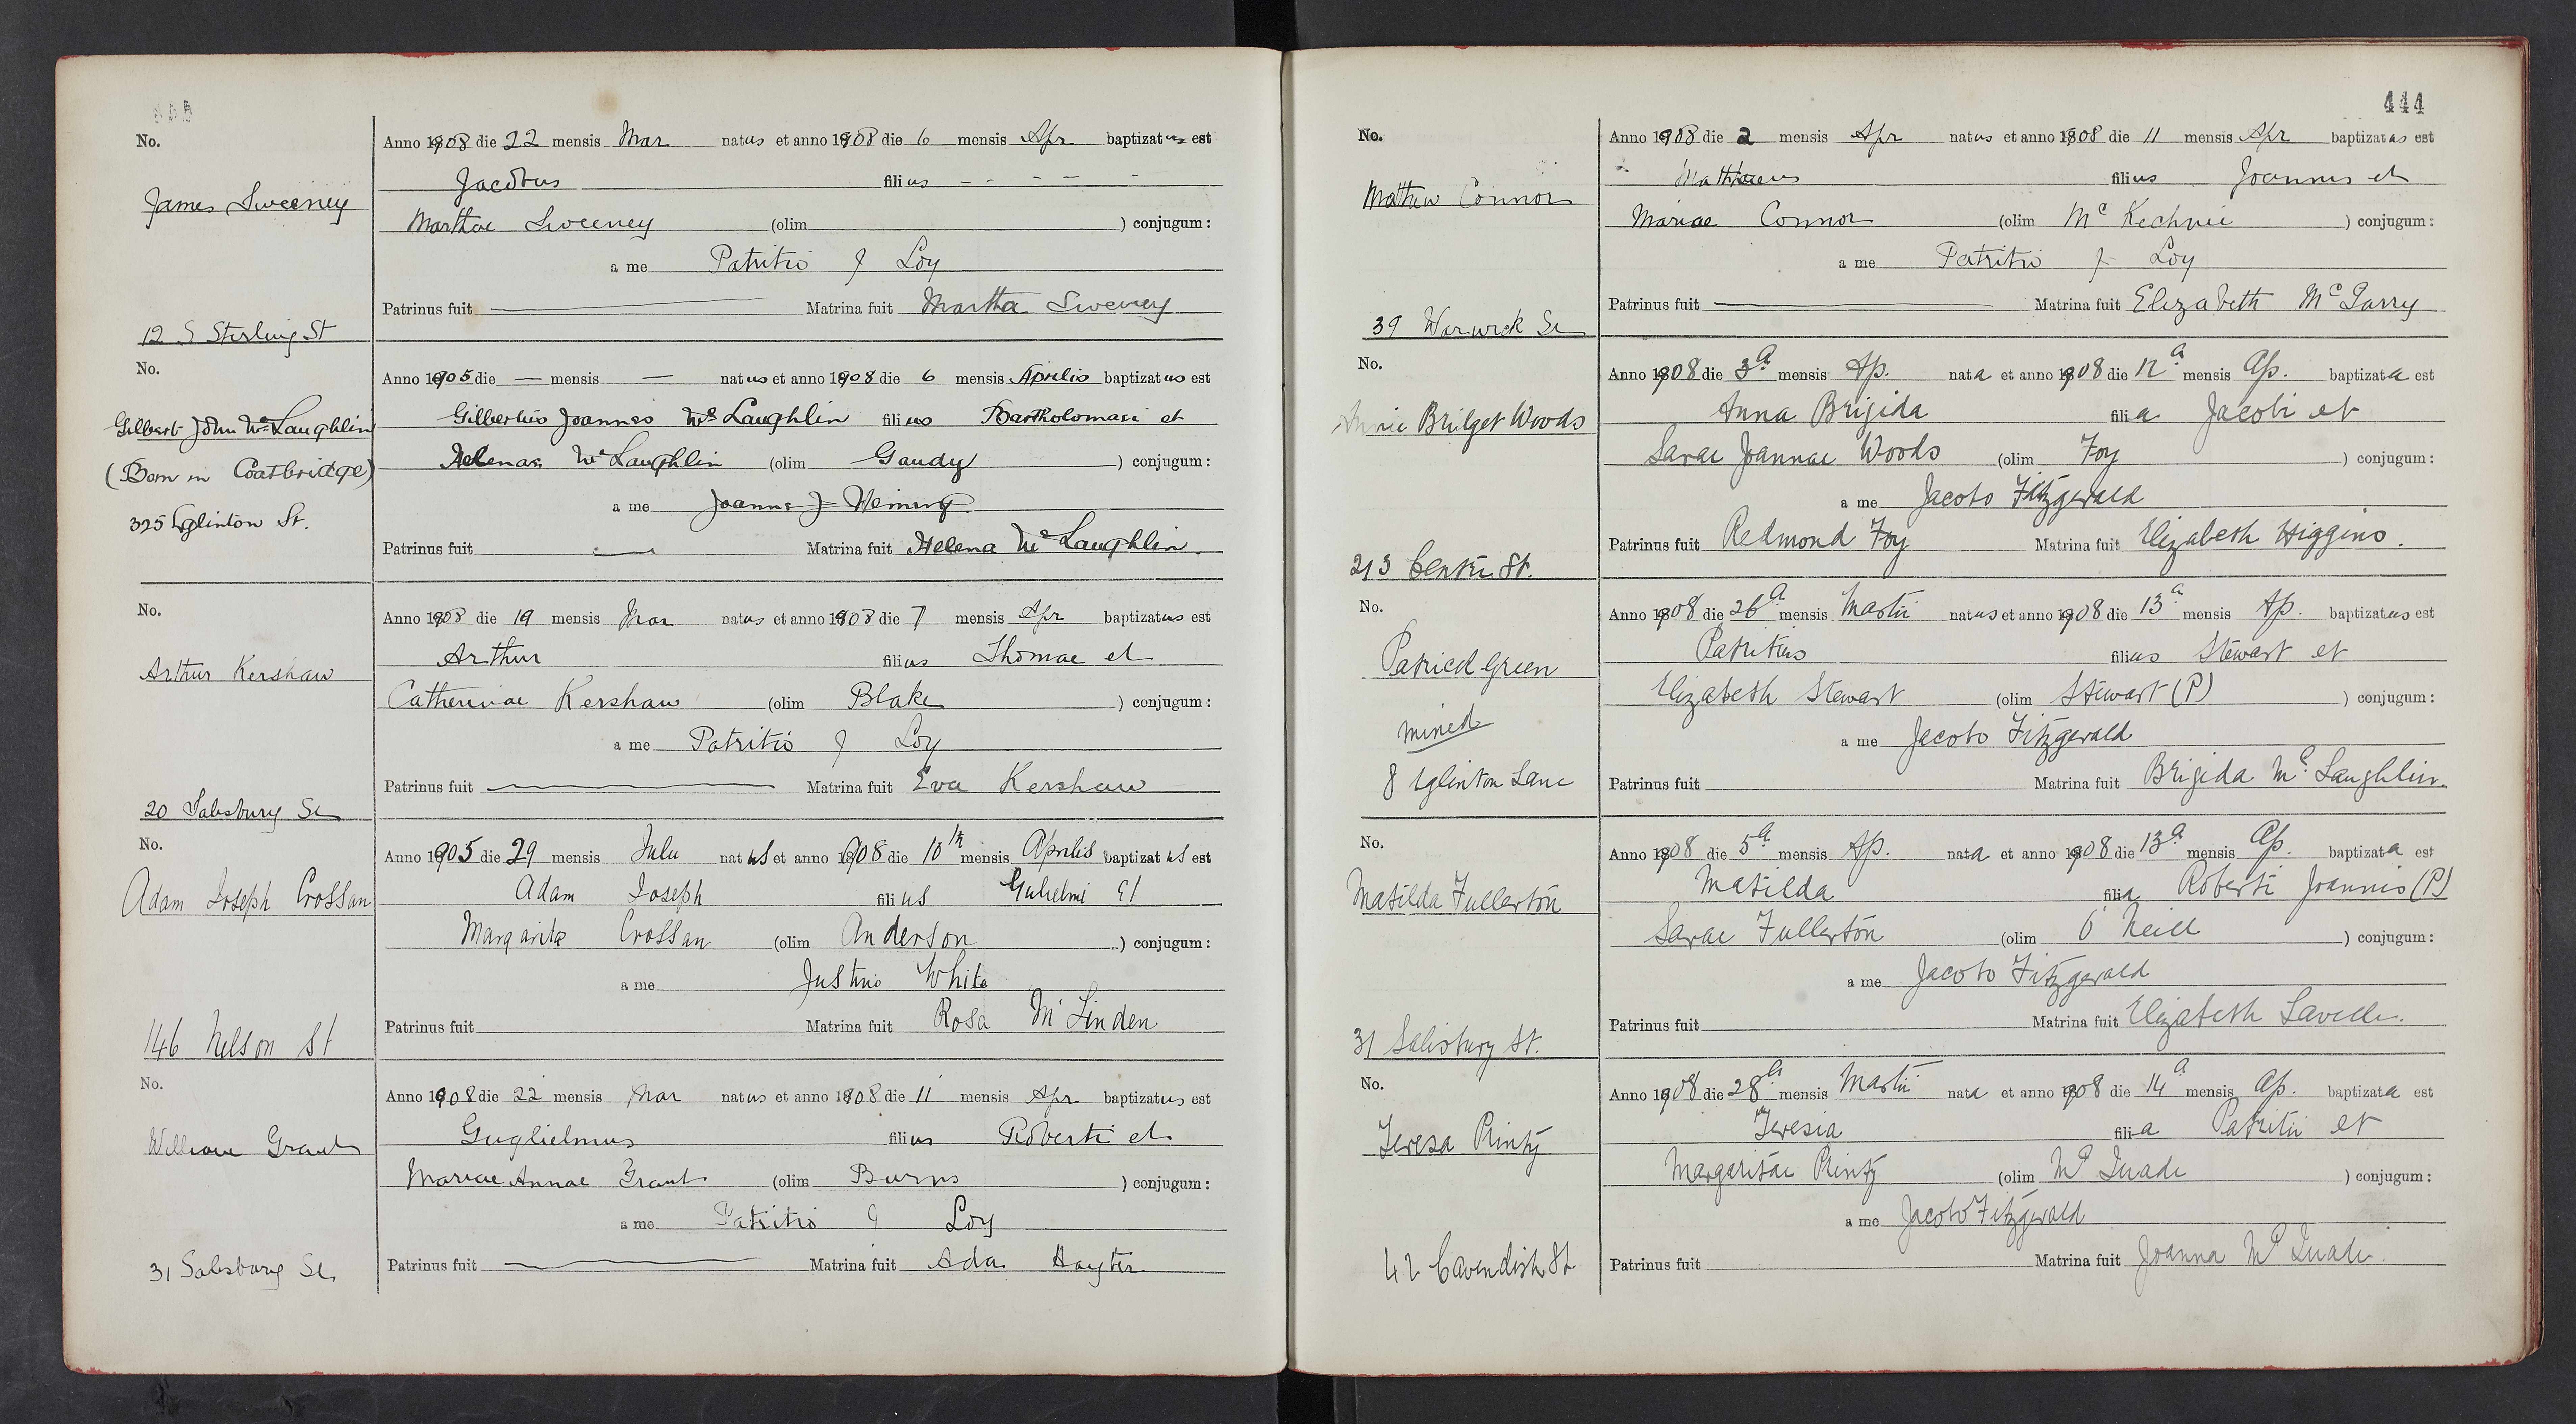 No.
James Sweeney
12 S Sterling St
Anno 1908 die 22 mensis Mar natus et anno 1908 die 6 mensis Apr baptizatus est
Jacobus filius - - - - -
Marthae Sweeney (olim ) conjugum:
a me Patritio J Loy
Patrinus fuit Matrina fuit Martha Sweeney
No.
Gilbert John McLaughlin
(Born in Coatbridge)
325 Eglinton St.
Anno 1905 die — mensis — natus et anno 1908 die 6 mensis Aprilis baptizatus est
Gilbertus Joannes McLaughlin filius Bartholomaei et
Helenae McLaughlin (olim Gaudy ) conjugum:
a me Joanne J
Patrinus fuit — Matrina fuit Helena McLaughlin.
No.
Arthur Kershaw
20 Salisbury St
Anno 1908 die 19 mensis Mar natus et anno 1908 die 7 mensis Apr baptizatus est
Arthur filius Thomae et
Catherinae Kershaw (olim Blake ) conjugum:
a me Patritio J Loy
Patrinus fuit Matrina fuit Eva Kershaw
No.
Adam Joseph Crossan
146 Nelson St
Anno 1905 die 29 mensis Julii natus et anno 1908 die 10th mensis Aprilis baptizatus est
Adam Joseph filius Gulielmi et
Margarita Crossan (olim Anderson ) conjugum:
a me Justino White
Patrinus fuit Matrina fuit Rosa McLinden
No.
William Grant
31 Salisbury St,
Anno 1908 die 22 mensis Mar natus et anno 1908 die 11 mensis Apr baptizatus est
Guglielmus filius Roberti et
Mariae Annae Grant (olim Burns ) conjugum:
a me Patritio J Loy
Patrinus fuit Matrina fuit Ada Hayter
444
No.
Mathew Connor
39 Warwick St
Anno 1908 die 2 mensis Apr natus et anno 1908 die 11 mensis Apr baptizatus est
Mathaeus filius Joannis et
Mariae Connor (olim McKechnie ) conjugum:
a me Patritio J Loy
Patrinus fuit Matrina fuit Elizabeth McGarry
No.
Annie Bridget Woods
213 Centre St.
Anno 1908 die 3a mensis Ap. nata et anno 1908 die 12a mensis Ap. baptizata est
Anna Brigida filia Jacobi et
Sarae Joannae Woods (olim Foy ) conjugum:
a me Jacobo Fitzgerald
Patrinus fuit Redmond Foy Matrina fuit Elizabeth Higgins.
No.
Patrick Green
mixed
8 Eglinton Lane
Anno 1908 die 26a mensis Martii natus et anno 1908 die 13a mensis Ap. baptizatus est
Patritius filius Stewart et
Elizabeth Stewart (olim Stewart (P) ) conjugum:
a me Jacobo Fitzgerald
Patrinus fuit Matrina fuit Brigida McLaughlin.
No.
Matilda Fullerton
31 Salisbury St.
Anno 1908 die 5a mensis Ap. nata et anno 1908 die 13a mensis Ap. baptizata est
Matilda filia Roberti Joannis (P)
Sarae Fullerton (olim O'Neill ) conjugum:
a me Jacobo Fitzgerald
Patrinus fuit Matrina fuit Elizabeth Lavelle.
No.
Teresa Printy
42 Cavendish St.
Anno 1908 die 28a mensis Martii nata et anno 1908 die 14a mensis Ap. baptizata est
Teresia filia Patritii et
Margaritae Printy (olim McQuade ) conjugum:
a me Jacobo Fitzgerald
Patrinus fuit Matrina fuit Joanna McQuade.